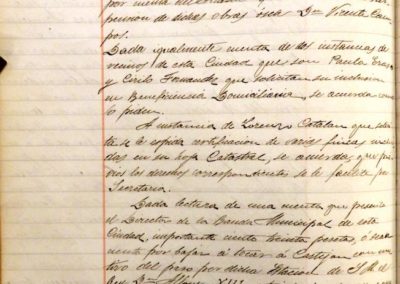 por
pension de dichas obras ó sea Don Vicente Cam
pos.
Dada igualmente cuenta de dos instancias de
vecinos de esta Ciudad que son Paula Eraso
y Cirilo Fernandez que solicitan su inclusion
en Beneficencia Domiciliaria, se acuerda como
lo piden.
A instancia de Lorenzo Catalan que solici
ta se le expida certificacion de varias fincas
das en su hoja Catastral, se acuerda, que pre
vios los derechos correspondientes se le facilite por
Secretaria.
Dada lectura de una cuenta que presenta
el Director de la Banda Municipal de esta
Ciudad, importante ciento treinta pesetas, ó sea
mente por bajar á tocar á Castejon con mo
tivo del paso por dicha Estacion de S. M. el
Rey Don Alfonso XIII